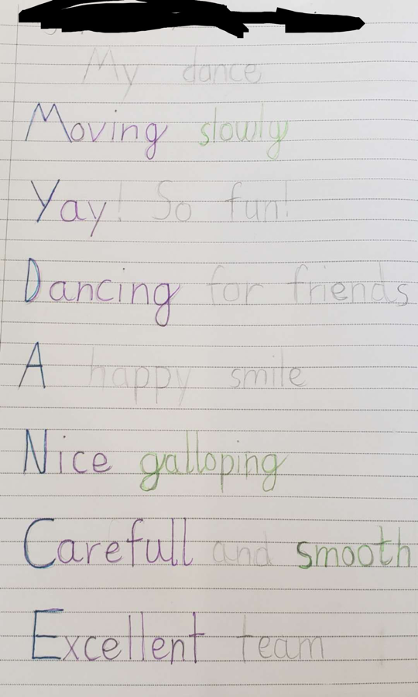 My dance
Moving slowly
Yay! So fun!
Dancing for friends
A happy smile
Nice galloping
Carefull and smooth
Excellent team